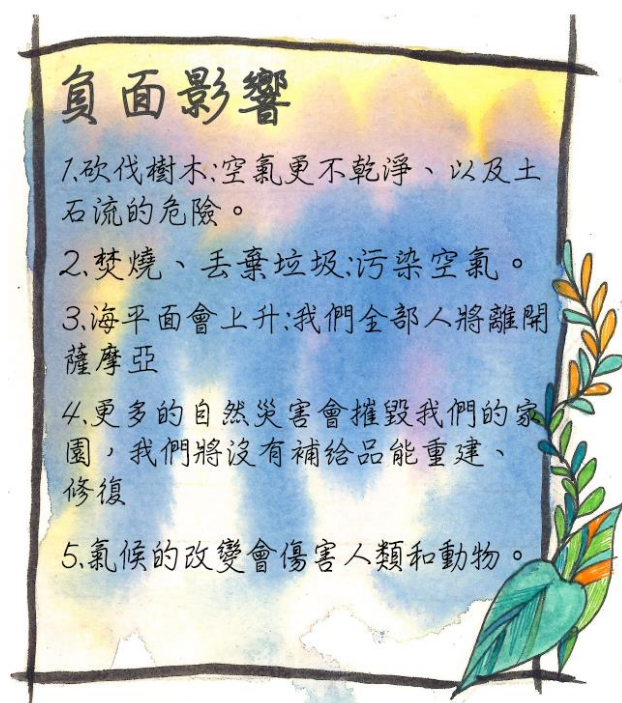 負面影響
1.砍伐樹木:空氣更不乾淨、以及土
石流的危險。
2.焚燒、丟棄垃圾:污染空氣。
3.海平面會上升:我們全部人將離開
薩摩亞
4.更多的自然災害會摧毀我們的家
園,我們將沒有補給品能重建、
修復
5.氣候的改變會傷害人類和動物。